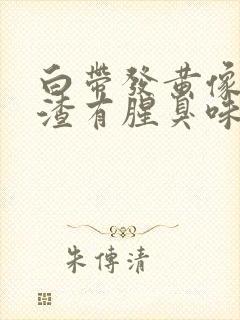 白帶發黃像
渣有腥臭味
朱傳清